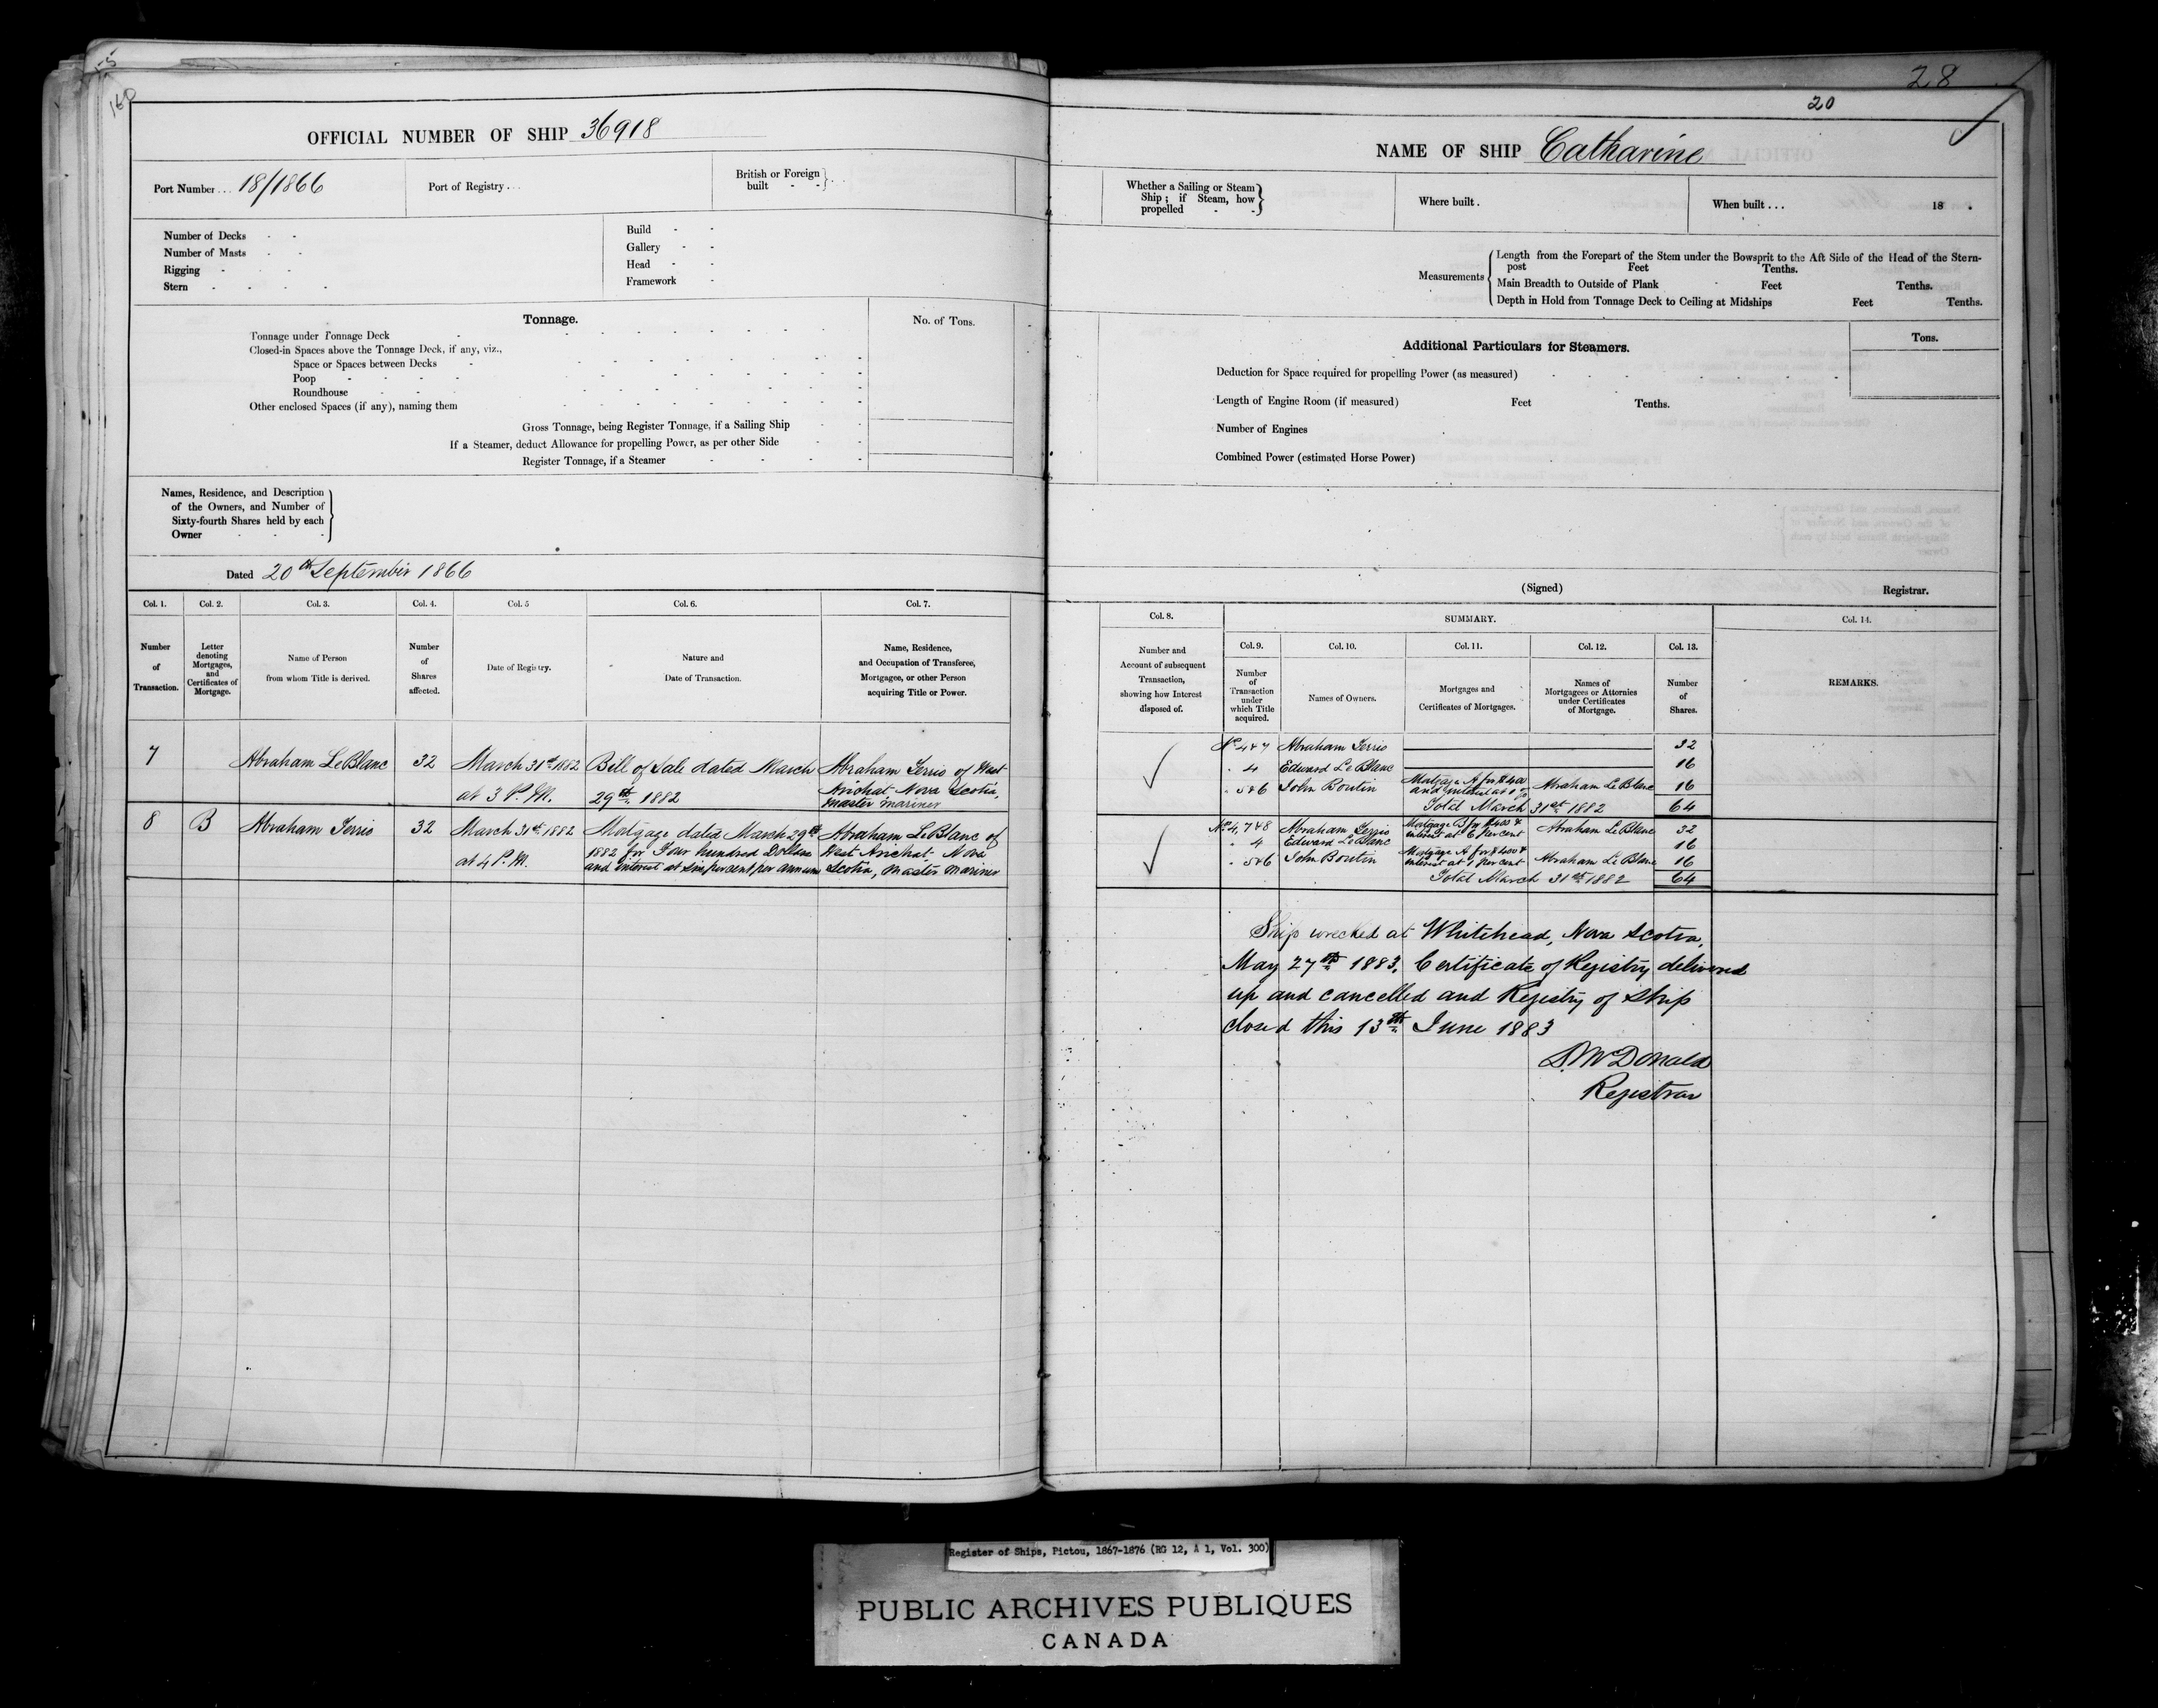 28
20
OFFICIAL NUMBER OF SHIP 36918
Port Number . . . 18/1866
Port of Registry . . .
British or Foreign built - - } . .
Number of Decks - -
Number of Masts - -
Rigging - - -
Stern - - - -
Build - -
Gallery - -
Head - -
Framework -
Tonnage.
No. of Tons.
Tonnage under Tonnage Deck
Closed-in Spaces above the Tonnage Deck, if any, viz.,
Space or Spaces between Decks
Poop
Roundhouse
Other enclosed Spaces (if any), naming them
Gross Tonnage, being Register Tonnage, if a Sailing Ship
If a Steamer, deduct Allowance for propelling Power, as per other Side
Register Tonnage, if a Steamer
Names, Residence, and Description
of the Owners, and Number of
Sixty-fourth Shares held by each
Owner
Dated 20th September 1866
Col. 1. Col. 2. Col. 3. Col. 4. Col. 5 Col. 6. Col. 7.
Number of Transaction.
Letter denoting Mortgages, and Certificates of Mortgage.
Name of Person from whom Title is derived.
Number of Shares affected.
Date of Registry.
Nature and Date of Transaction.
Name, Residence, and Occupation of Transferee, Mortgagee, or other Person acquiring Title or Power.
7 Abraham LeBlanc 32 March 31st 1882 Bill of Sale dated March Abraham Terrio of West
at 3 P.M. 29th 1882 Arichat Nova Scotia,
master mariner
8 B Abraham Terrio 32 March 31st 1882 Mortgage dated March 29th Abraham LeBlanc of
at 4 P.M. 1882 for Four hundred Dollars West Arichat, Nova
and interest at six per cent per annum Scotia, Master Mariner
NAME OF SHIP Catharine
Whether a Sailing or Steam
Ship; if Steam, how
propelled - -
Where built .
When built . . . 18 .
Measurements
Length from the Forepart of the Stem under the Bowsprit to the Aft Side of the Head of the Stern-
post Feet Tenths.
Main Breadth to Outside of Plank - Feet Tenths.
Depth in Hold from Tonnage Deck to Ceiling at Midships Feet Tenths.
Additional Particulars for Steamers.
Tons.
Deduction for Space required for propelling Power (as measured)
Length of Engine Room (if measured) Feet Tenths.
Number of Engines
Combined Power (estimated Horse Power)
(Signed) Registrar.
Col. 8. SUMMARY. Col. 14.
Col. 9. Col. 10. Col. 11. Col. 12. Col. 13.
Number and Account of subsequent Transaction, showing how Interest disposed of.
Number of Transaction under which Title acquired.
Names of Owners.
Mortgages and Certificates of Mortgages.
Names of Mortgagees or Attornies under Certificates of Mortgage.
Number of Shares.
REMARKS.
No 4 & 7 Abraham Terrio 32
" 4 Edward LeBlanc 16
" 5 & 6 John Boutin Mortgage A for $400 and interest at Abraham LeBlanc 16
Total March 31st 1882 64
No 4, 7 & 8 Abraham Terrio Mortgage B for $400 & interest at 6 per cent Abraham LeBlanc 32
" 4 Edward LeBlanc 16
" 5 & 6 John Boutin Mortgage A for $400 & interest at 7 per cent Abraham LeBlanc 16
Total March 31st 1882 64
Ship wrecked at Whitehead, Nova Scotia,
May 27th 1883. Certificate of Registry delivered
up and cancelled and Registry of Ship
closed this 13th June 1883
D. McDonald
Registrar
Register of Ships, Pictou, 1867-1876 (RG 12, A 1, Vol. 300)
PUBLIC ARCHIVES PUBLIQUES
CANADA